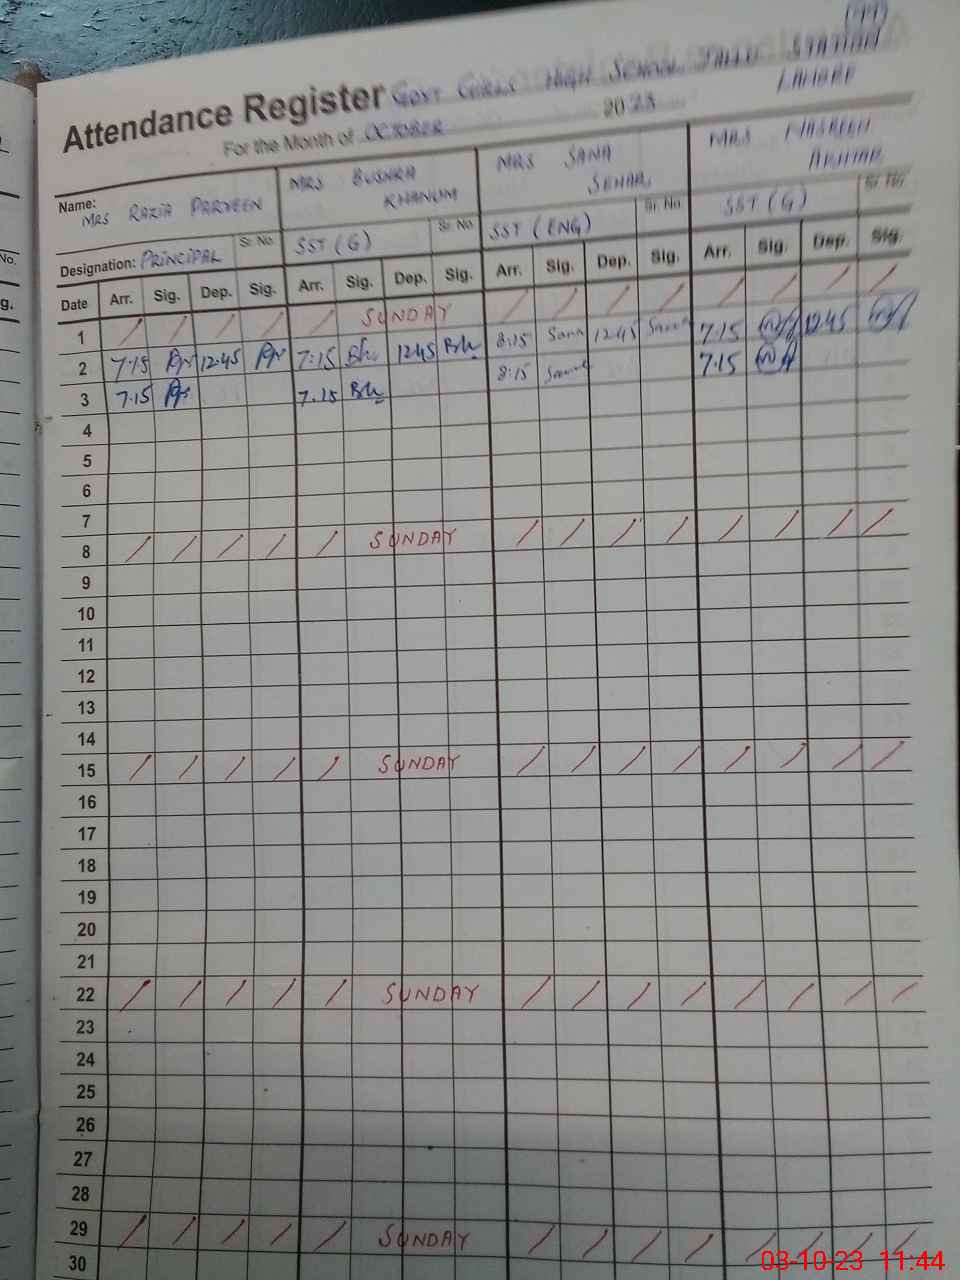 (11)
Attendance Register GOVT GIRLS HIGH SCHOOL JALLO STATION
LAHORE
For the Month of OCTOBER 2023
Name: MRS RAZIA PARVEEN MRS BUSHRA KHANUM MRS SANA SEHAR MRS NASREEN AKHTAR
Designation: PRINCIPAL Sr. No. SST (G) Sr. No. SST (ENG) Sr. No. SST (G) Sr. No.
Date Arr. Sig. Dep. Sig. Arr. Sig. Dep. Sig. Arr. Sig. Dep. Sig. Arr. Sig. Dep. Sig.
1 / / / / / SUNDAY / / / / / / / /
2 7:15 12:45 7:15 12:45 8:15 Sana 12:45 Sana 7:15 12:45
3 7.15 7.15 8:15 Sana 7:15
4
5
6
7
8 / / / / / SUNDAY / / / / / / / /
9
10
11
12
13
14
15 / / / / / SUNDAY / / / / / / / /
16
17
18
19
20
21
22 / / / / / SUNDAY / / / / / / / /
23
24
25
26
27
28
29 / / / / / SUNDAY / / / / / / / /
30
No.
g.
03-10-23 11:44